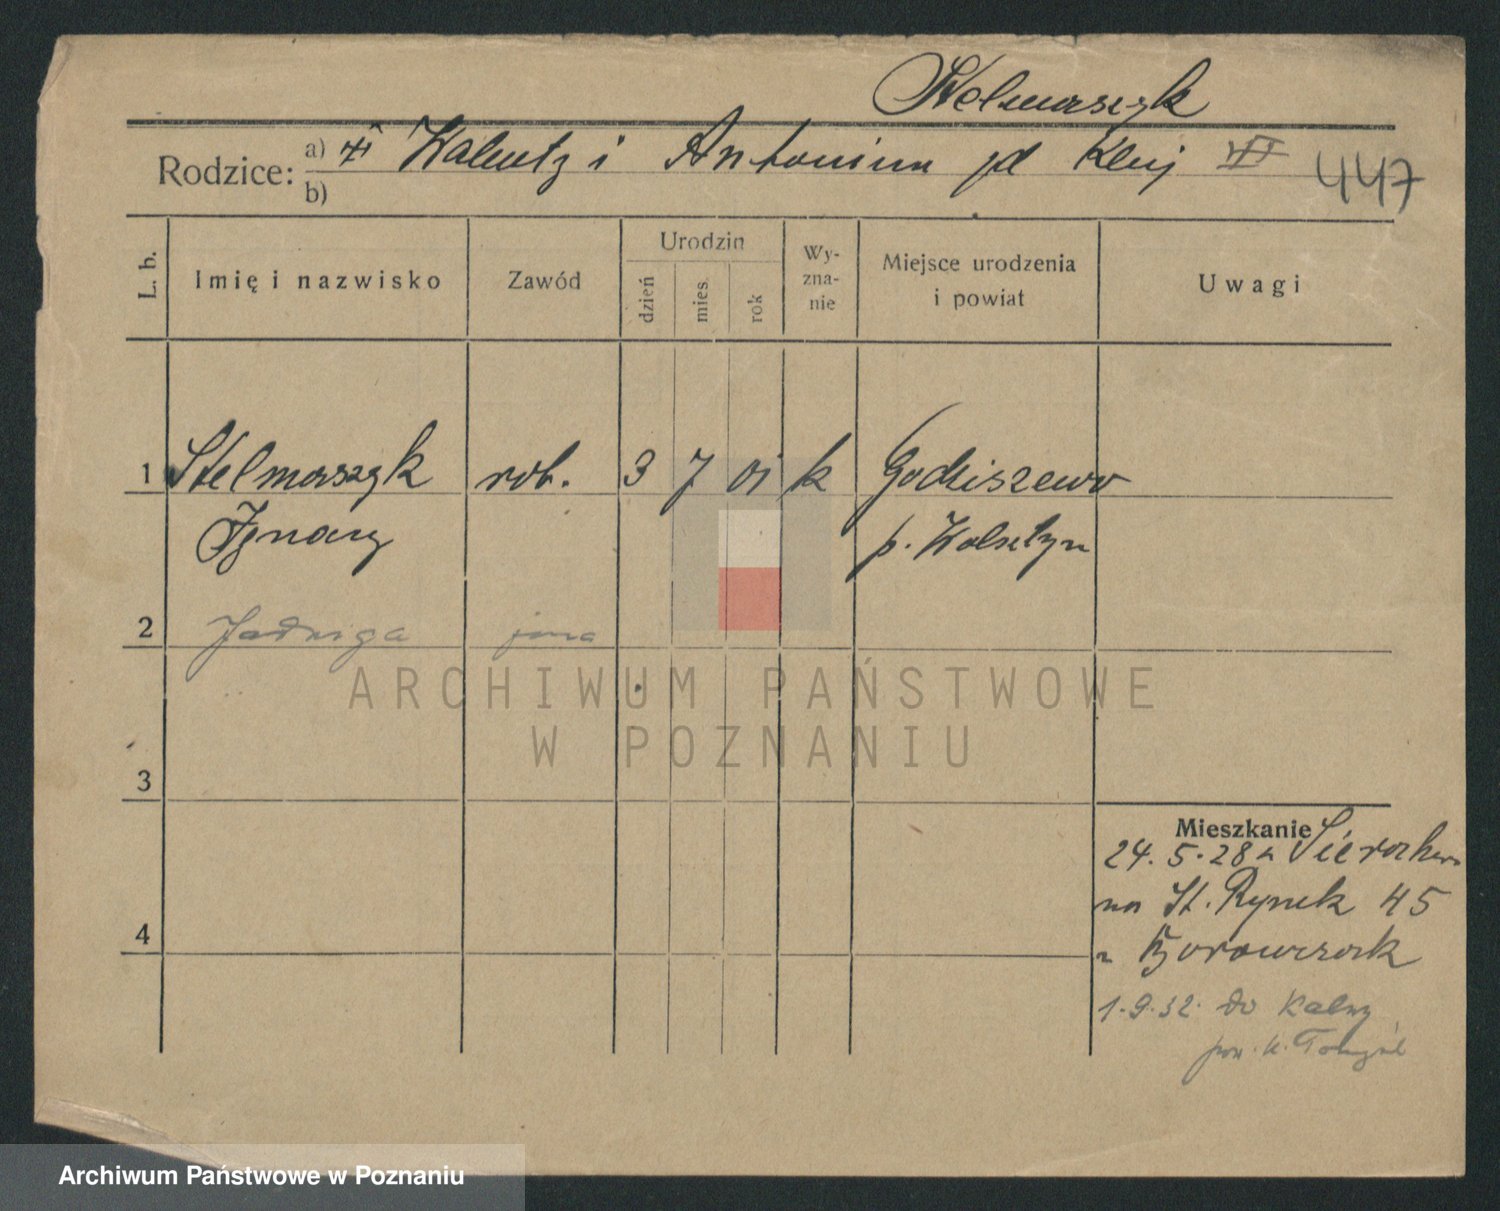 Stelmaszyk
Rodzice: a) Walenty i Antonina jd Kluj
b)
447
L. b.
Imię i nazwisko
Zawód
Urodzin
dzień
mies.
rok
Wy-
zna-
nie
Miejsce urodzenia
i powiat
Uwagi
1 Stelmaszyk rob. 3 7 01 k Godziszewo
Ignacy p. Wolsztyn
2 Jadwiga żona
3
4
Mieszkanie
24. 5. 28 z
na St. Rynek 45
z Borowczak
1. 9. 32. do
pow. N. Tomyśl
ARCHIWUM PAŃSTWOWE
W POZNANIU
Archiwum Państwowe w Poznaniu